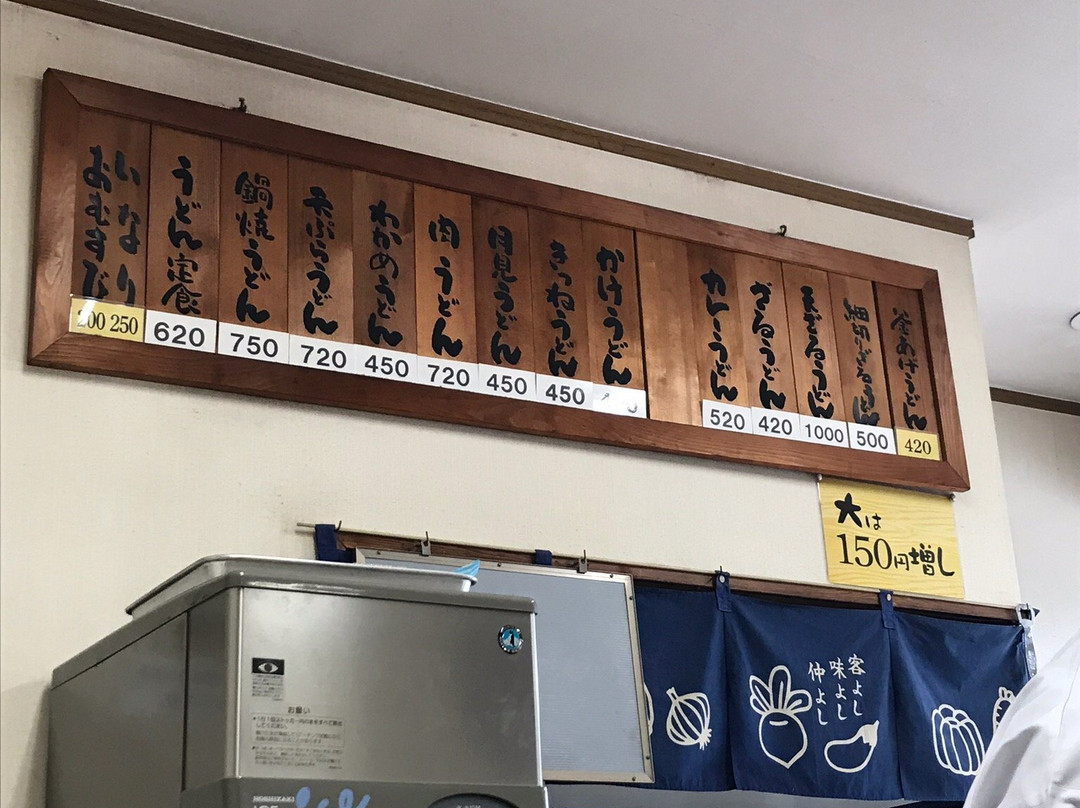 釜あげうどん
420
細切りざるうどん
500
天ざるうどん
1000
ざるうどん
420
カレーうどん
520
かけうどん
きつねうどん
450
月見うどん
450
肉うどん
720
わかめうどん
450
天ぷらうどん
720
鍋焼うどん
750
うどん定食
620
いなり
おむすび
200 250
大は
150円増し
客よし
味よし
仲よし
お願い